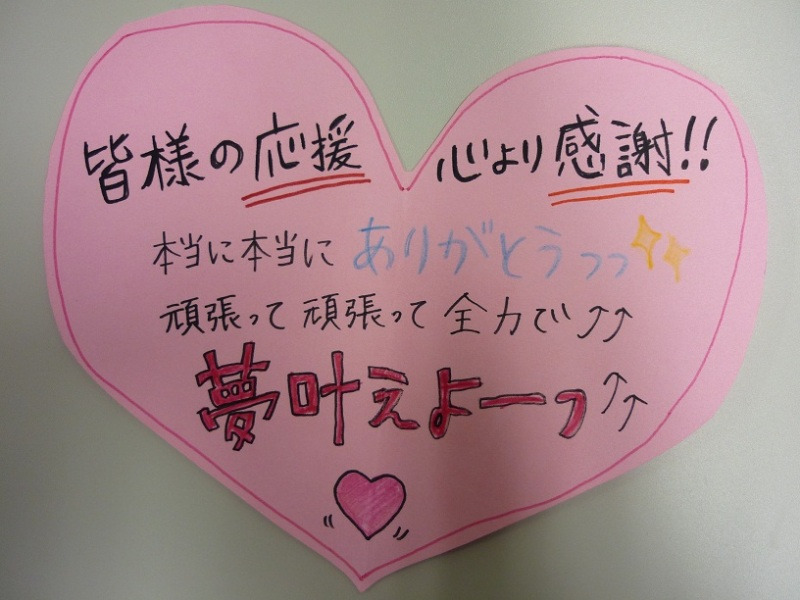 皆様の応援 心より感謝!!
本当に本当に ありがとうっっ
頑張って 頑張って 全力で↑↑
夢叶えよーっ↑↑